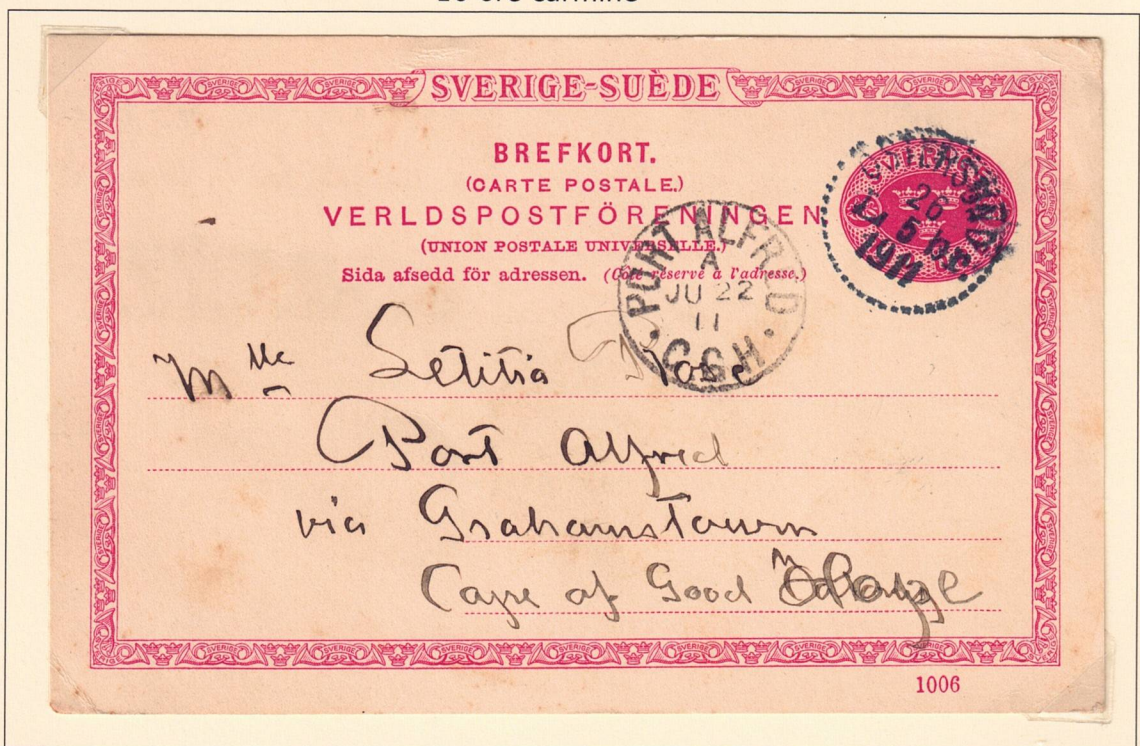 10 öre carmine
SVERIGE-SUÈDE
BREFKORT.
(CARTE POSTALE.)
VERLDSPOSTFÖRENINGEN
(UNION POSTALE UNIVERSELLE.)
Sida afsedd för adressen. (Côté réservé à l'adresse.)
26
5
1911
PORT ALFRED
A
JU 22
11
C.G.H.
Mlle Letitia Rose
Port Alfred
via Grahamstown
Cape of Good
1006